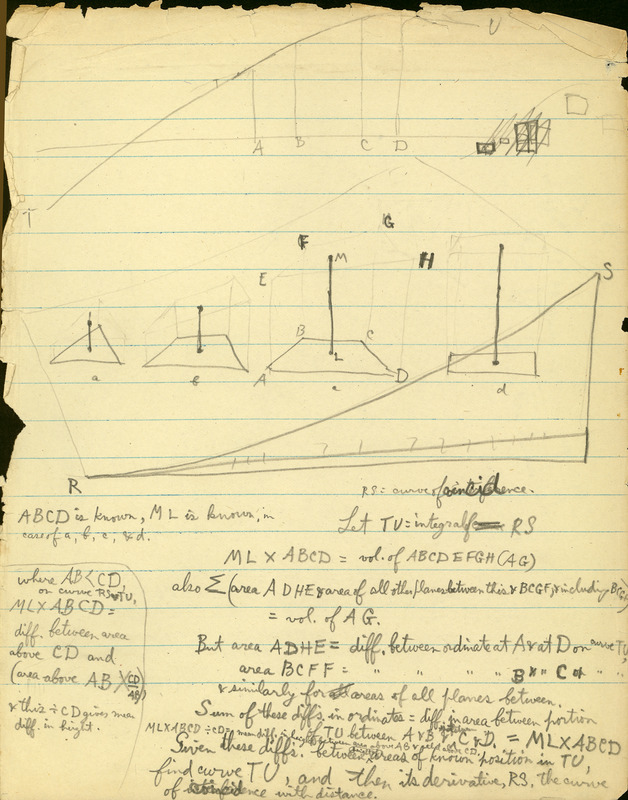 U
A B C D
T
G
F M H S
E
B C
L
A D
a b c d
R
RS = curve of incidence.
ABCD is known, ML is known, in
case of a, b, c, & d.
Let TU = integral of RS
ML X ABCD = vol. of ABCDEFGH (AG)
also Σ (area ADHE & area of all other planes between this & BCGF, & including BCGF)
= vol. of AG.
where AB < CD,
on curve TU,
ML X ABCD =
diff. between area
above CD and
(area above AB X CD/AB)
& this ÷ CD gives mean
diff. in height.
But area ADHE = diff. between ordinate at A & at D on curve TU,
area BCFF = " " " " B " " C " "
& similarly for areas of all planes between.
Sum of these diffs. in ordinates = diff. in area between portion
of TU between A & B & C & D. = ML X ABCD
ML X ABCD ÷ CD = mean diff. in height between
Given these diffs. between areas of known position in TU,
find curve TU, and then its derivative, RS, the curve
of incidence with distance.